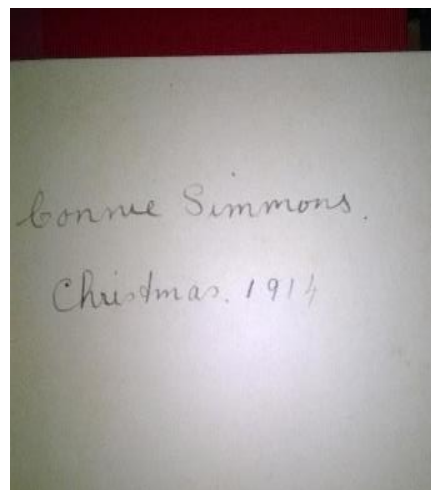 Connie Simmons.
Christmas. 1914